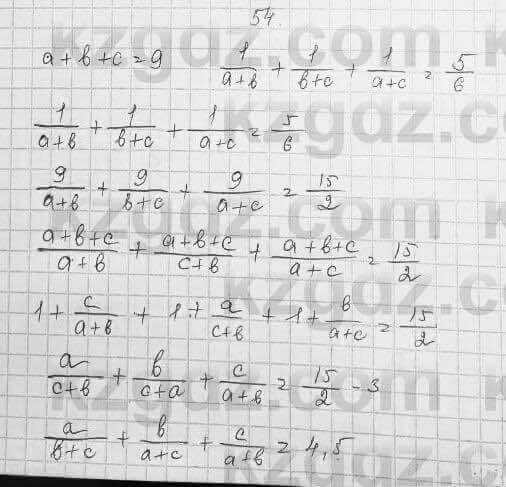 54.
a+b+c=9 1/(a+b) + 1/(b+c) + 1/(a+c) = 5/6
1/(a+b) + 1/(b+c) + 1/(a+c) = 5/6
9/(a+b) + 9/(b+c) + 9/(a+c) = 15/2
(a+b+c)/(a+b) + (a+b+c)/(c+b) + (a+b+c)/(a+c) = 15/2
1 + c/(a+b) + 1 + a/(c+b) + 1 + b/(a+c) = 15/2
a/(c+b) + b/(c+a) + c/(a+b) = 15/2 - 3
a/(b+c) + b/(a+c) + c/(a+b) = 4,5
kzgdz.com